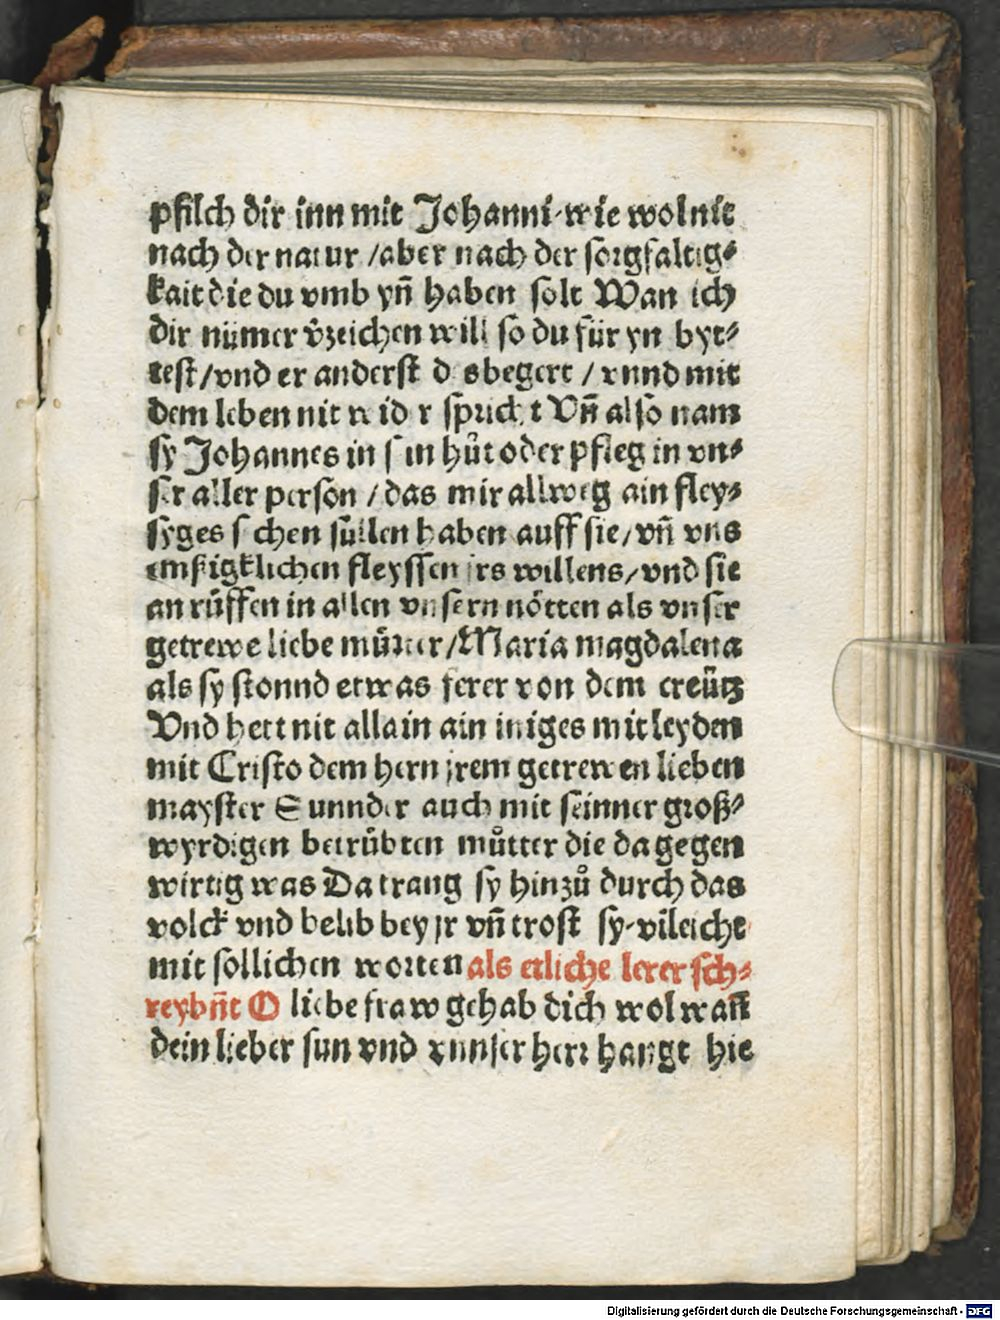 pfilch dir inn mit Johanni·wie wol nit
nach der natur /aber nach der sorgfaltig⸗
kait die du vmb yn̄ haben solt Wan ich
dir nümer v̄zeichen will so du für yn byt⸗
test/vnd er anderst d sbegert / vnnd mit
dem leben nit wid r sprich t Vn̄ also nam
sy Johannes in s in hůt oder pfleg in vn⸗
ser aller person /das mir allweg ain fley⸗
syges s chen süllen haben auff sie/vn̄ vns
emßigklichen fleyssen jrs willens/vnd sie
an rüffen in allen vnsern nötten als vnser
getrewe liebe můtter/Maria magdalena
als sy stonnd etwas ferer von dem creütz
Vnd hett nit allain ain iniges mitleyden
mit Cristo dem hern jrem getrewen lieben
mayster Sunnder auch mit seinner groß⸗
wyrdigen betrübten můtter die da gegen
wirtig was Da trang sy hinzů durch das
volck vnd belib bey jr vn̄ trost sy·vileicht
mit sollichen worten als etliche lerer sch⸗
reybn̄t O liebe fraw gehab dich wol wan̄
dein lieber sun vnd vnnser herr hangt hie
Digitalisierung gefördert durch die Deutsche Forschungsgemeinschaft - DFG